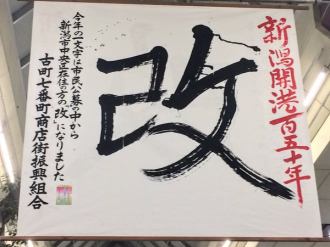 新潟開港百五十年
改
今年の一文字は市民公募の中から
新潟市中央区在住の方の「改」になりました
古町七番町商店街振興組合